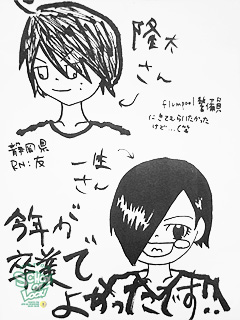 隆太
さん
flumpool 警備員
にきてもらいたかった
けど…(笑
静岡県
RN:友
一生
さん
今年が
卒業で
よかったです!!